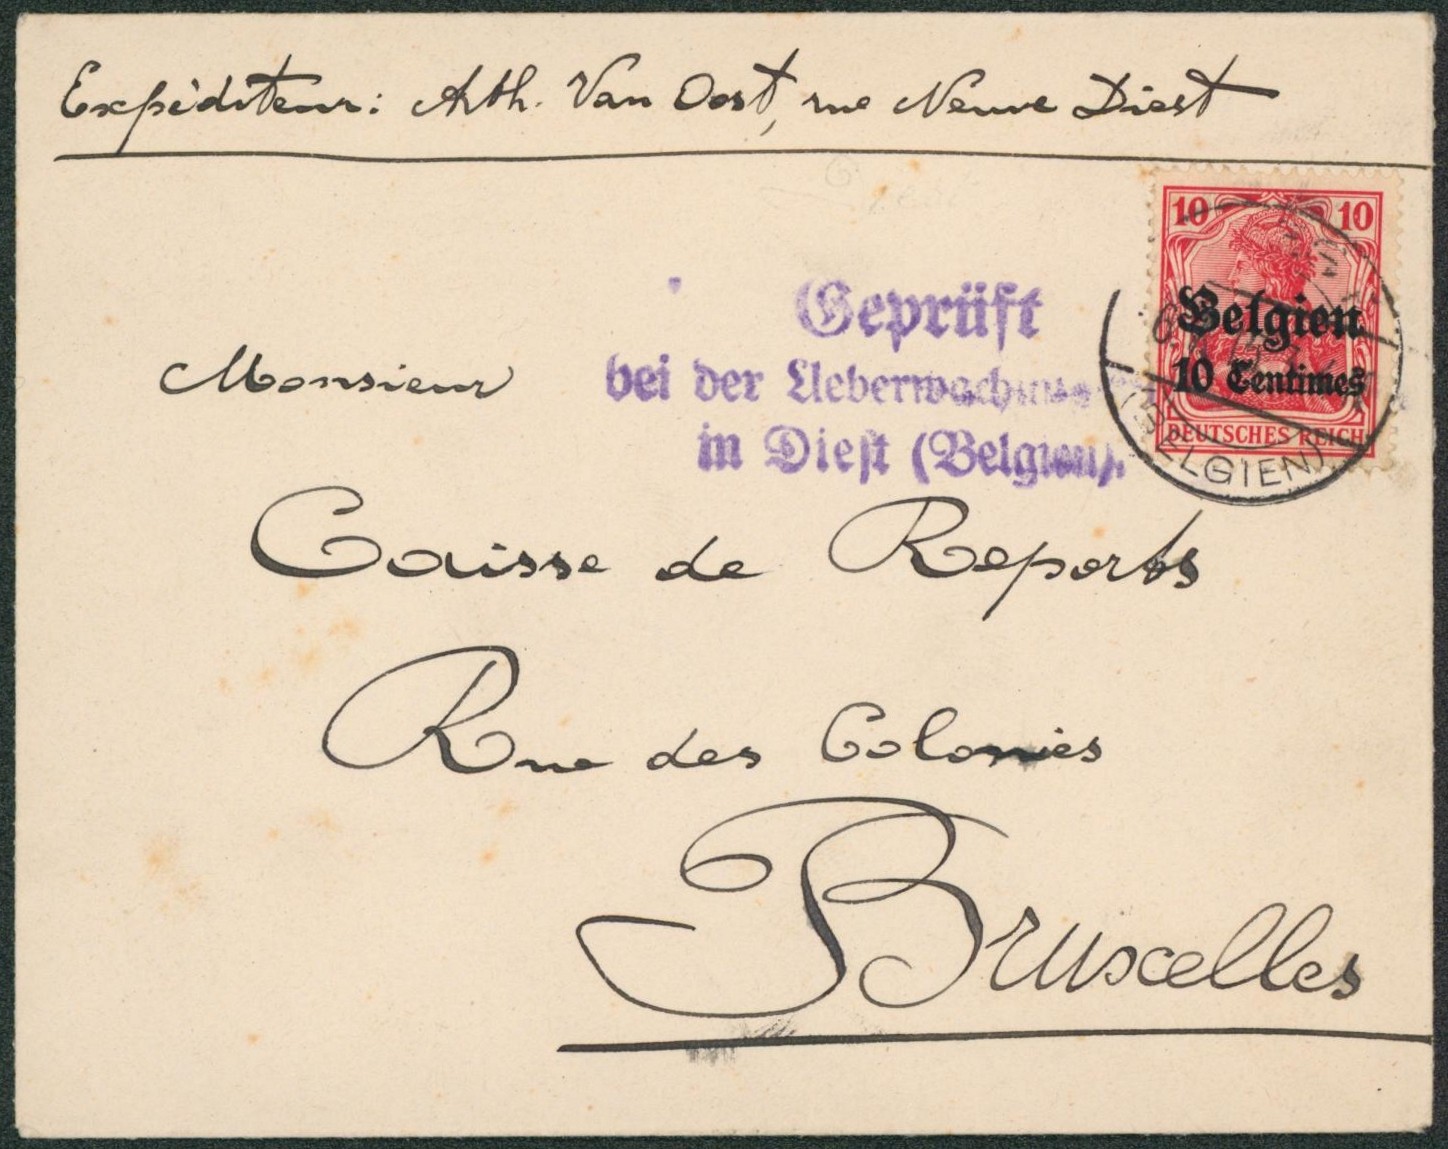 Expéditeur: Arth. Van Oost, rue Neuve Diest
10 10
Belgien
10 Centimes
DEUTSCHES REICH
(BELGIEN)
Geprüft
bei der
in Diest (Belgien).
Monsieur
Caisse de Reports
Rue des Colonies
Bruxelles